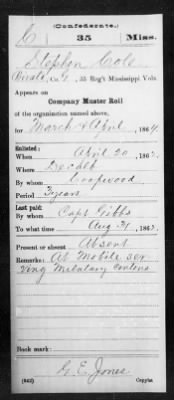 (Confederate.)
C 35 Miss.
Stephen Cole
Private, Co. G, 35 Reg't Mississippi Vols.
Appears on
Company Muster Roll
of the organization named above,
for March & April, 1864.
Enlisted:
When April 20, 186
Where Decalb
By whom Loopwood
Period 3 years
Last paid:
By whom Capt Gibbs
To what time Aug 31, 186
Present or absent Absent
Remarks: At Mobile ser
ving Melatary
Book mark:
G. E. Jones
(642) Copyist.